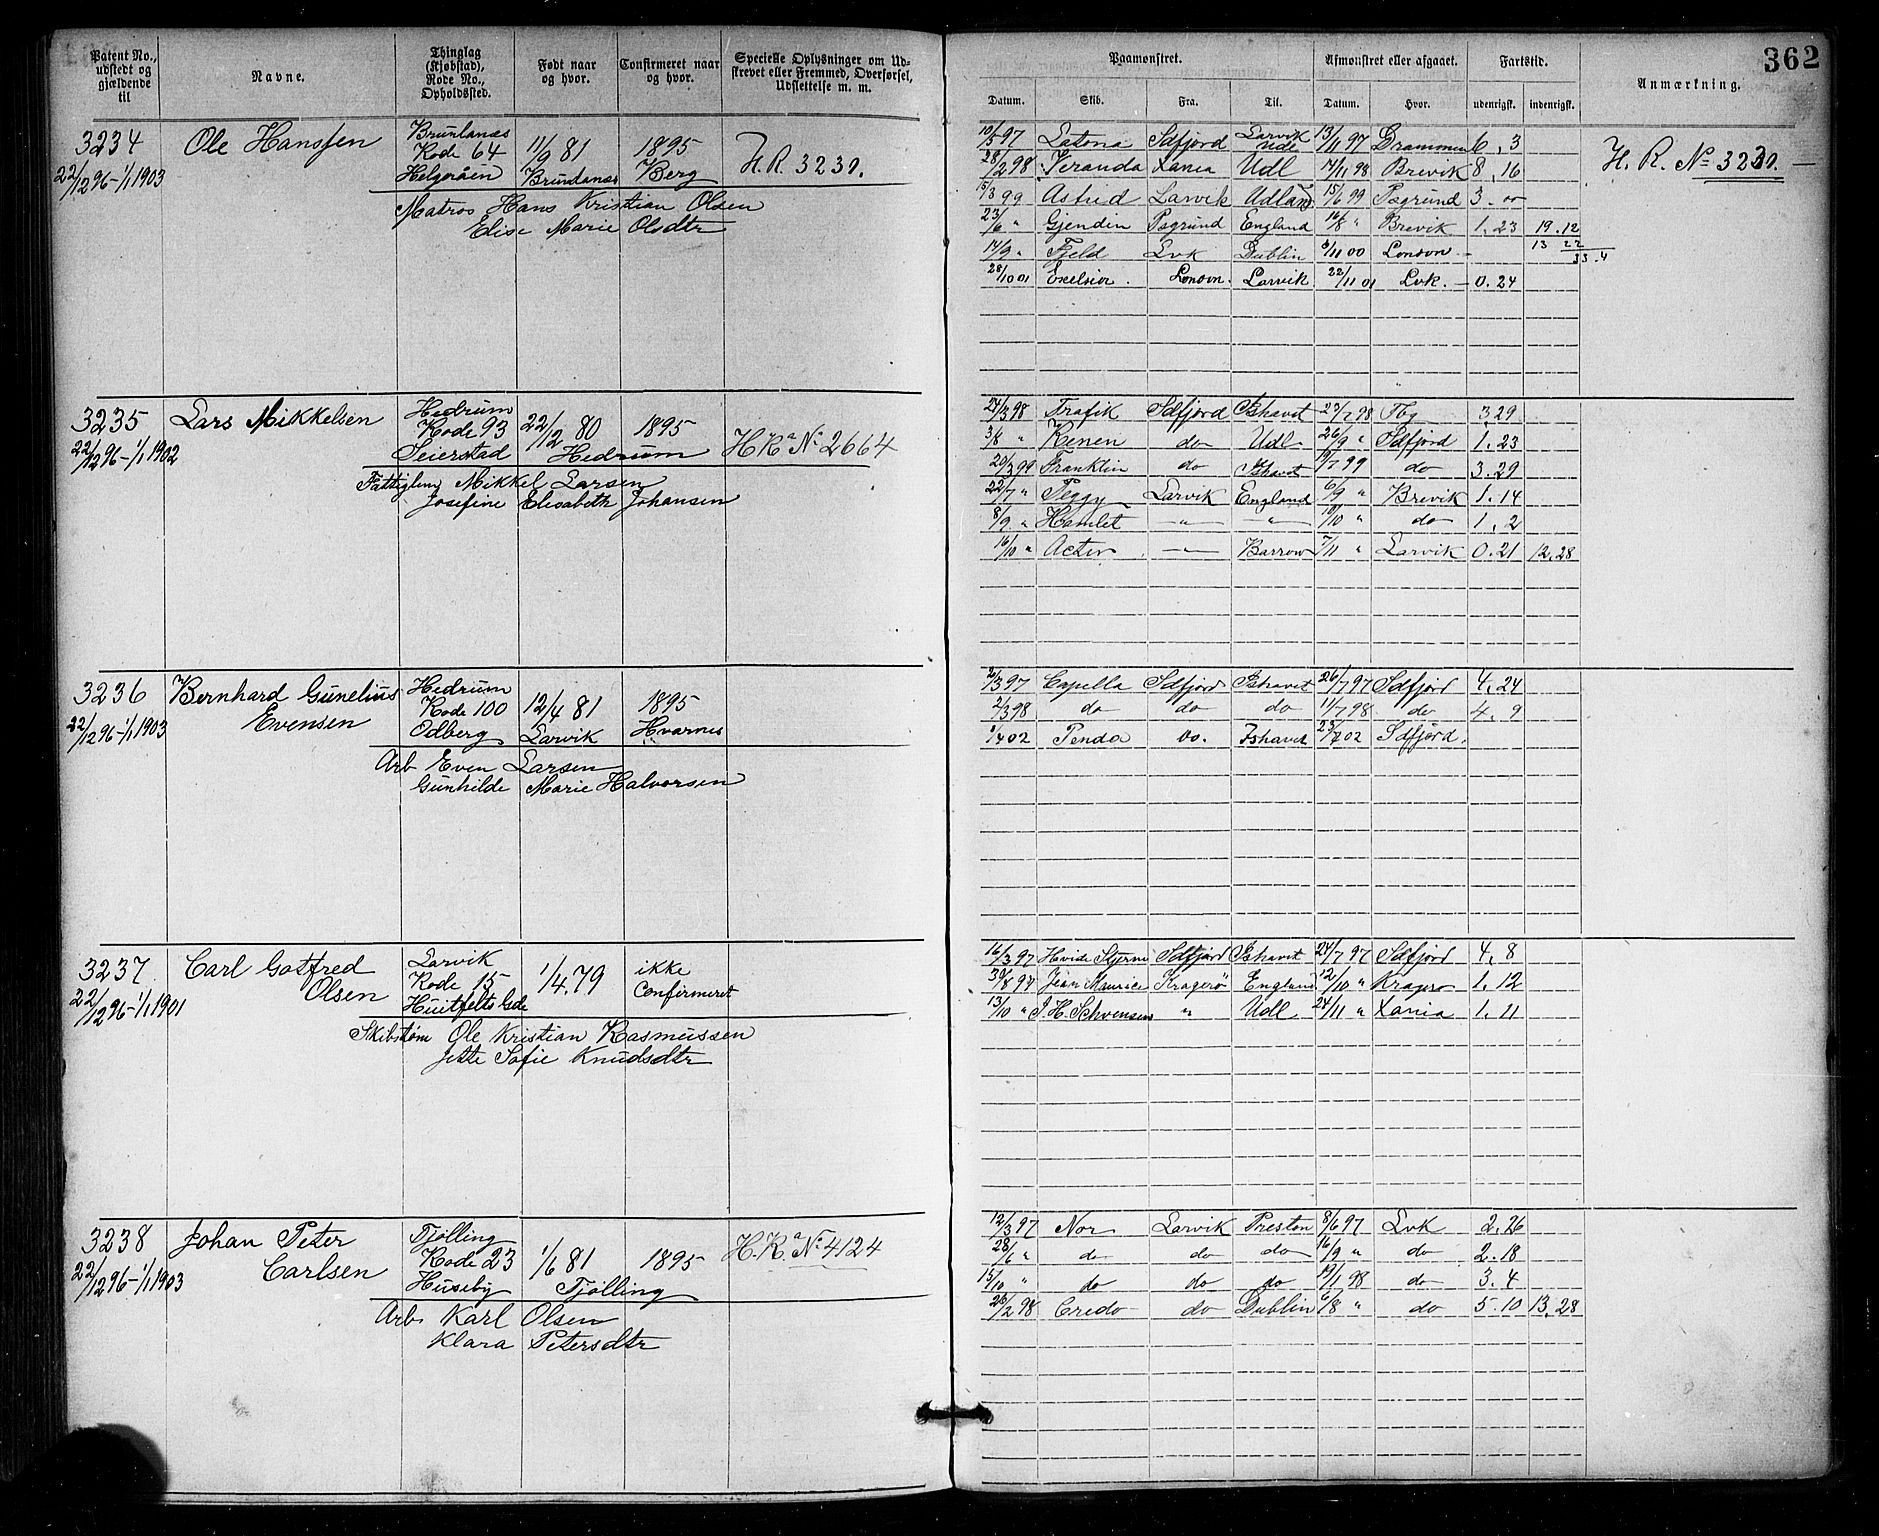 Patent No., udstedt og gjældende til
Navne.
Thinglag (Kjøbstad), Rode No., Opholdssted.
Født naar og hvor.
Confirmeret naar og hvor.
Specielle Oplysninger om Udskrevet eller Fremmed, Overførsel, Udslettelse m. m.
3234 Ole Hanssen Brunlanæs 11/9 81 1895 H. R. 3230.
22/12 96-1/1 1903 Rode 64 Brunlanæs Berg
Helgeråen
Matros Hans Kristian Olsen
Elise Marie Olsdtr
3235 Lars Mikkelsen Hedrum 22/12 80 1895 H Ra No 2664
22/12 96-1/1 1902 Rode 93 Hedrum
Seierstad
Fattiglem Mikkel Larsen
Josefine Elisabeth Johansen
3236 Bernhard Gunelius Hedrum 12/4 81 1895
22/12 96-1/1 1903 Evensen Rode 100 Larvik Hvarnes
Odberg
Arb Even Larsen
Gunhilde Marie Halvorsen
3237 Carl Gotfred Larvik 1/4.79 ikke
22/12 96-1/1 1901 Olsen Rode 15 Confirmeret
Huitfelts Gde
Skibstøm Ole Kristian Rasmussen
Jette Sofie Knudsdtr
3238 Johan Peter Tjølling 1/6 81 1895 H. Ra No 4124
22/12 96-1/1 1903 Carlsen Rode 23 Tjølling
Huseby
Arb Karl Olsen
Klara Petersdtr
362
Paamønstret. Afmønstret eller afgaaet. Fartstid. Anmærkning.
Datum. Skib. Fra. Til. Datum. Hvor. udenrigsk. indenrigsk.
10/5 97 Latona Sdfjord Larvik Ude 13/11 97 Drammen 6.3 H. R. No 3230.
28/2 98 Veranda Xania Udl 17/11 98 Brevik 8.16
15/3 99 Astrid Larvik Udland 15/6 99 Psgrund 3.00
23/6 " Gjendin Psgrund England 16/8 " Brevik 1.23 19.12
17/9 " Fjeld Lvk Dublin 8/11 00 London - 13 22
33.4
28/10 01 Exelsior. London. Larvik. 22/11 01 Lvk. - 0.24
24/3 98 Trafik Sdfjord Ishavet 23/7 98 Tbg 3.29
3/8 " Kenen do Udl 26/9 " Sdfjord 1.23
20/3 99 Franklin do Ishavet 19/7 99 do 3.29
22/7 " Peggy Larvik England 6/9 " Brevik 1.14
8/9 " Hamlet " " 10/10 " do 1.2
16/10 " Acten " Barrow 7/11 " Larvik 0.21 12.28
2/3 97 Capella Sdfjord Ishavet 26/7 97 Sdfjord 4.24
2/3 98 do do do 11/7 98 do 4.9
1/4 02 Penda Do. Ishavet 23/7 02 Sdfjord.
16/3 97 Hvide Stjerne Sdfjord Ishavet 24/7 97 Sdfjord 4.8
30/8 97 Jean Maurice Kragerø England 12/10 " Kragerø 1.12
13/10 " J. H. Schwensen " Udl 24/11 " Xania 1.11
12/3 97 Nor Larvik Preston 8/6 97 Lvk 2.26
28/6 " do do do 16/9 " do 2.18
15/10 " do do do 19/1 98 do 3.4
26/2 98 Credo do Dublin 6/8 " do 5.10 13.28